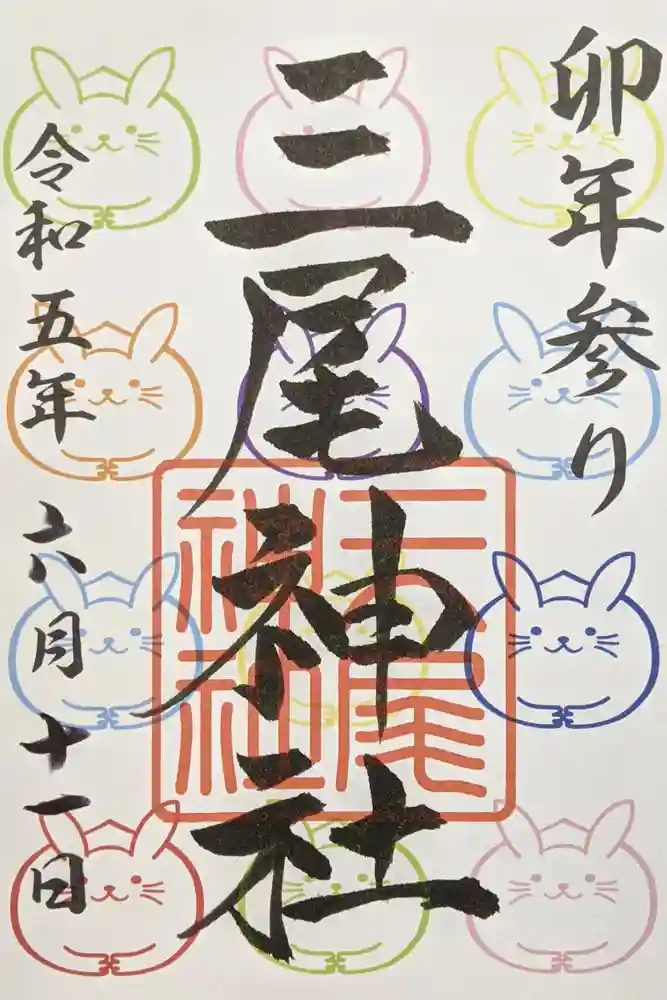 卯年参り
三尾神社
三尾
神社
令和五年六月十一日